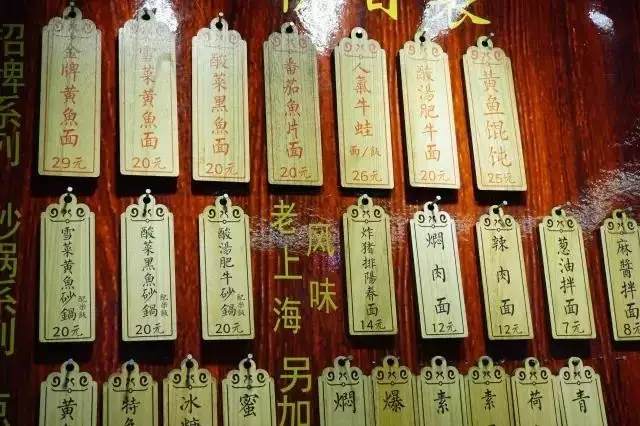 招牌系列
金牌黄魚面
29元
雪菜黄魚面
20元
酸菜黑魚面
20元
番茄魚片面
20元
人氣牛蛙
面/飯
26元
酸湯肥牛面
20元
黄鱼馄饨
25元
砂锅系列
雪菜黄魚砂鍋
配米飯
20元
酸菜黑魚砂鍋
配米飯
20元
酸湯肥牛砂鍋
配米飯
20元
老上海
风味
炸猪排陽春面
14元
燜肉面
12元
辣肉面
12元
葱油拌面
7元
麻醬拌面
8元
黄
特
冰糖
蜜
另加
燜
爆
素
素
荷
青